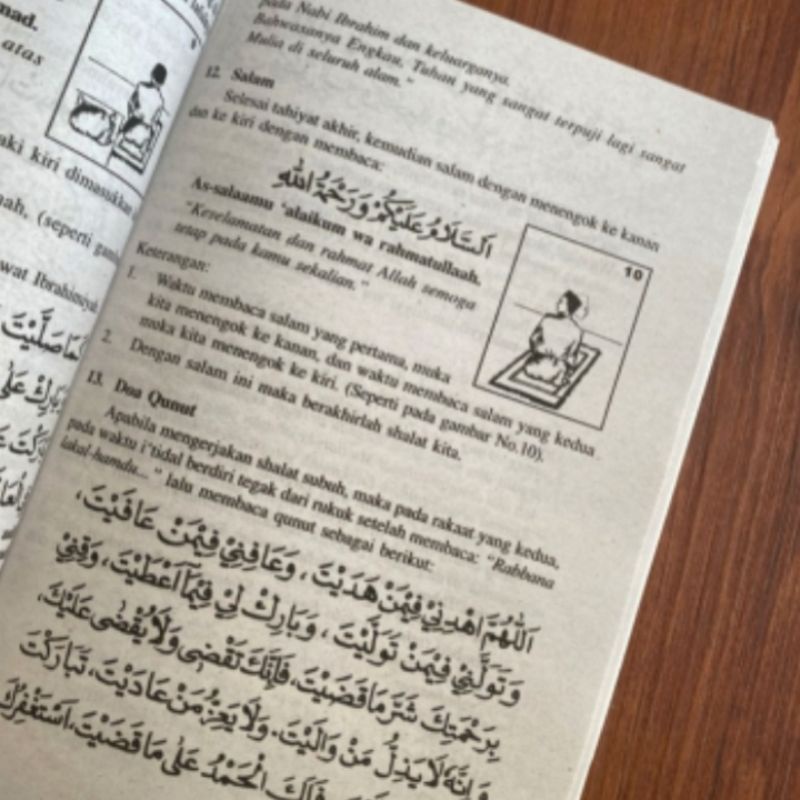 mad.
atas
aki kiri dimasukkan
ah, (seperti gam
wat Ibrahimiya
pada Nabi Ibrahim dan keluarganya.
Bahwasanya Engkau, Tuhan yang sangat terpuji lagi sangat
Mulia di seluruh alam."
12. Salam
Selesai tahiyat akhir, kemudian salam dengan menengok ke kanan
dan ke kiri dengan membaca:
اَلسَّلَامُ عَلَيْكُمْ وَرَحْمَةُ اللهِ
As-salaamu 'alaikum wa rahmatullaah.
"Keselamatan dan rahmat Allah semoga
tetap pada kamu sekalian."
10
Keterangan:
1. Waktu membaca salam yang pertama, muka
kita menengok ke kanan, dan waktu membaca salam yang kedua
muka kita menengok ke kiri. (Seperti pada gambar No.10).
2. Dengan salam ini maka berakhirlah shalat kita.
13. Doa Qunut
Apabila mengerjakan shalat subuh, maka pada rakaat yang kedua,
pada waktu i'tidal berdiri tegak dari rukuk setelah membaca: "Rabbana
lakal-hamdu..." lalu membaca qunut sebagai berikut:
اَللّٰهُمَّ اهْدِنِيْ فِيْمَنْ هَدَيْتَ، وَعَافِنِيْ فِيْمَنْ عَافَيْتَ،
وَتَوَلَّنِيْ فِيْمَنْ تَوَلَّيْتَ، وَبَارِكْ لِيْ فِيْمَا اَعْطَيْتَ، وَقِنِيْ
بِرَحْمَتِكَ شَرَّ مَا قَضَيْتَ، فَاِنَّكَ تَقْضِى وَلَا يُقْضٰى عَلَيْكَ،
وَاِنَّهُ لَا يَذِلُّ مَنْ وَالَيْتَ. وَلَا يَعِزُّ مَنْ عَادَيْتَ، تَبَارَكْتَ
فَلَكَ الْحَمْدُ عَلٰى مَا قَضَيْتَ، اَسْتَغْفِرُكَ